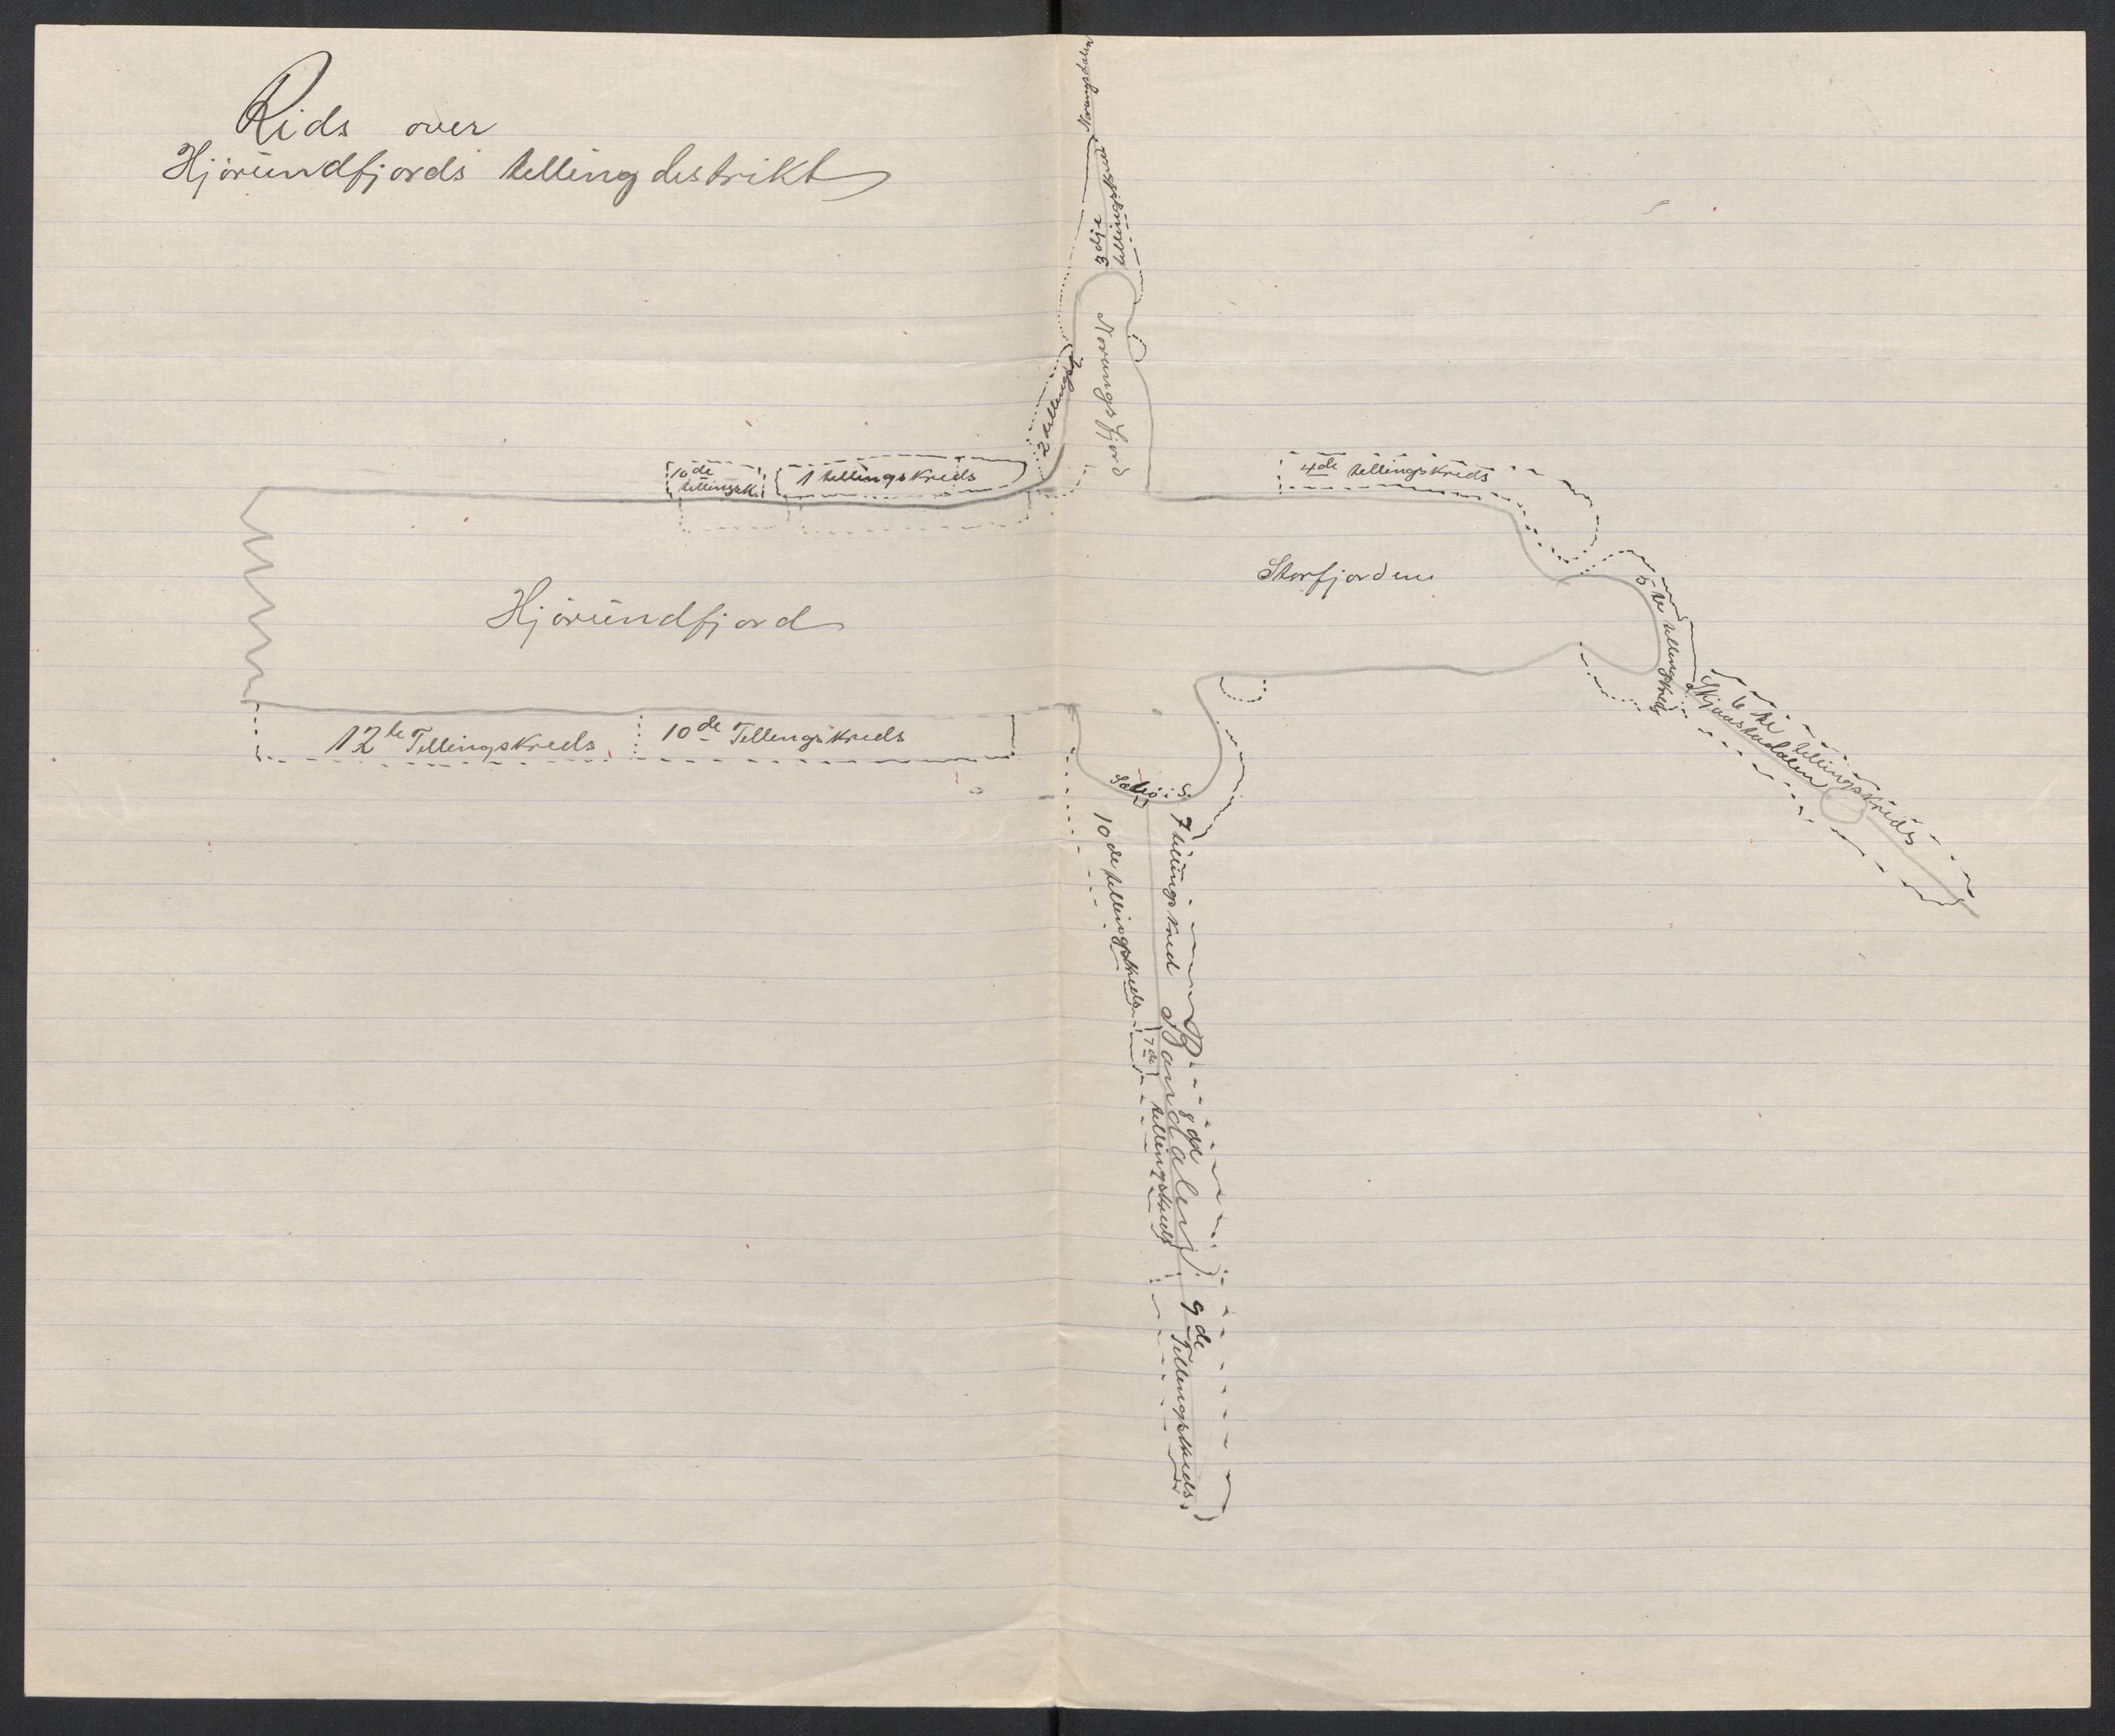 Rids over
Hjørundfjords tellingdistrikt
Norangsdalen
3dje
tellingskreds
Norangsfjord
2 tellingsk
10de
tellingsk.
1 tellingskreds
4de tellingskreds
Storfjorden
5te tellingskreds
6te tellingskreds
Skjaastadalen
Hjørundfjord
12te Tellingskreds
10de Tellingskreds
Sæbø i S.
10de tellingskreds
7 tellingskred
Bondalen
7de
8de
tellingskreds
9de
Tellingskreds